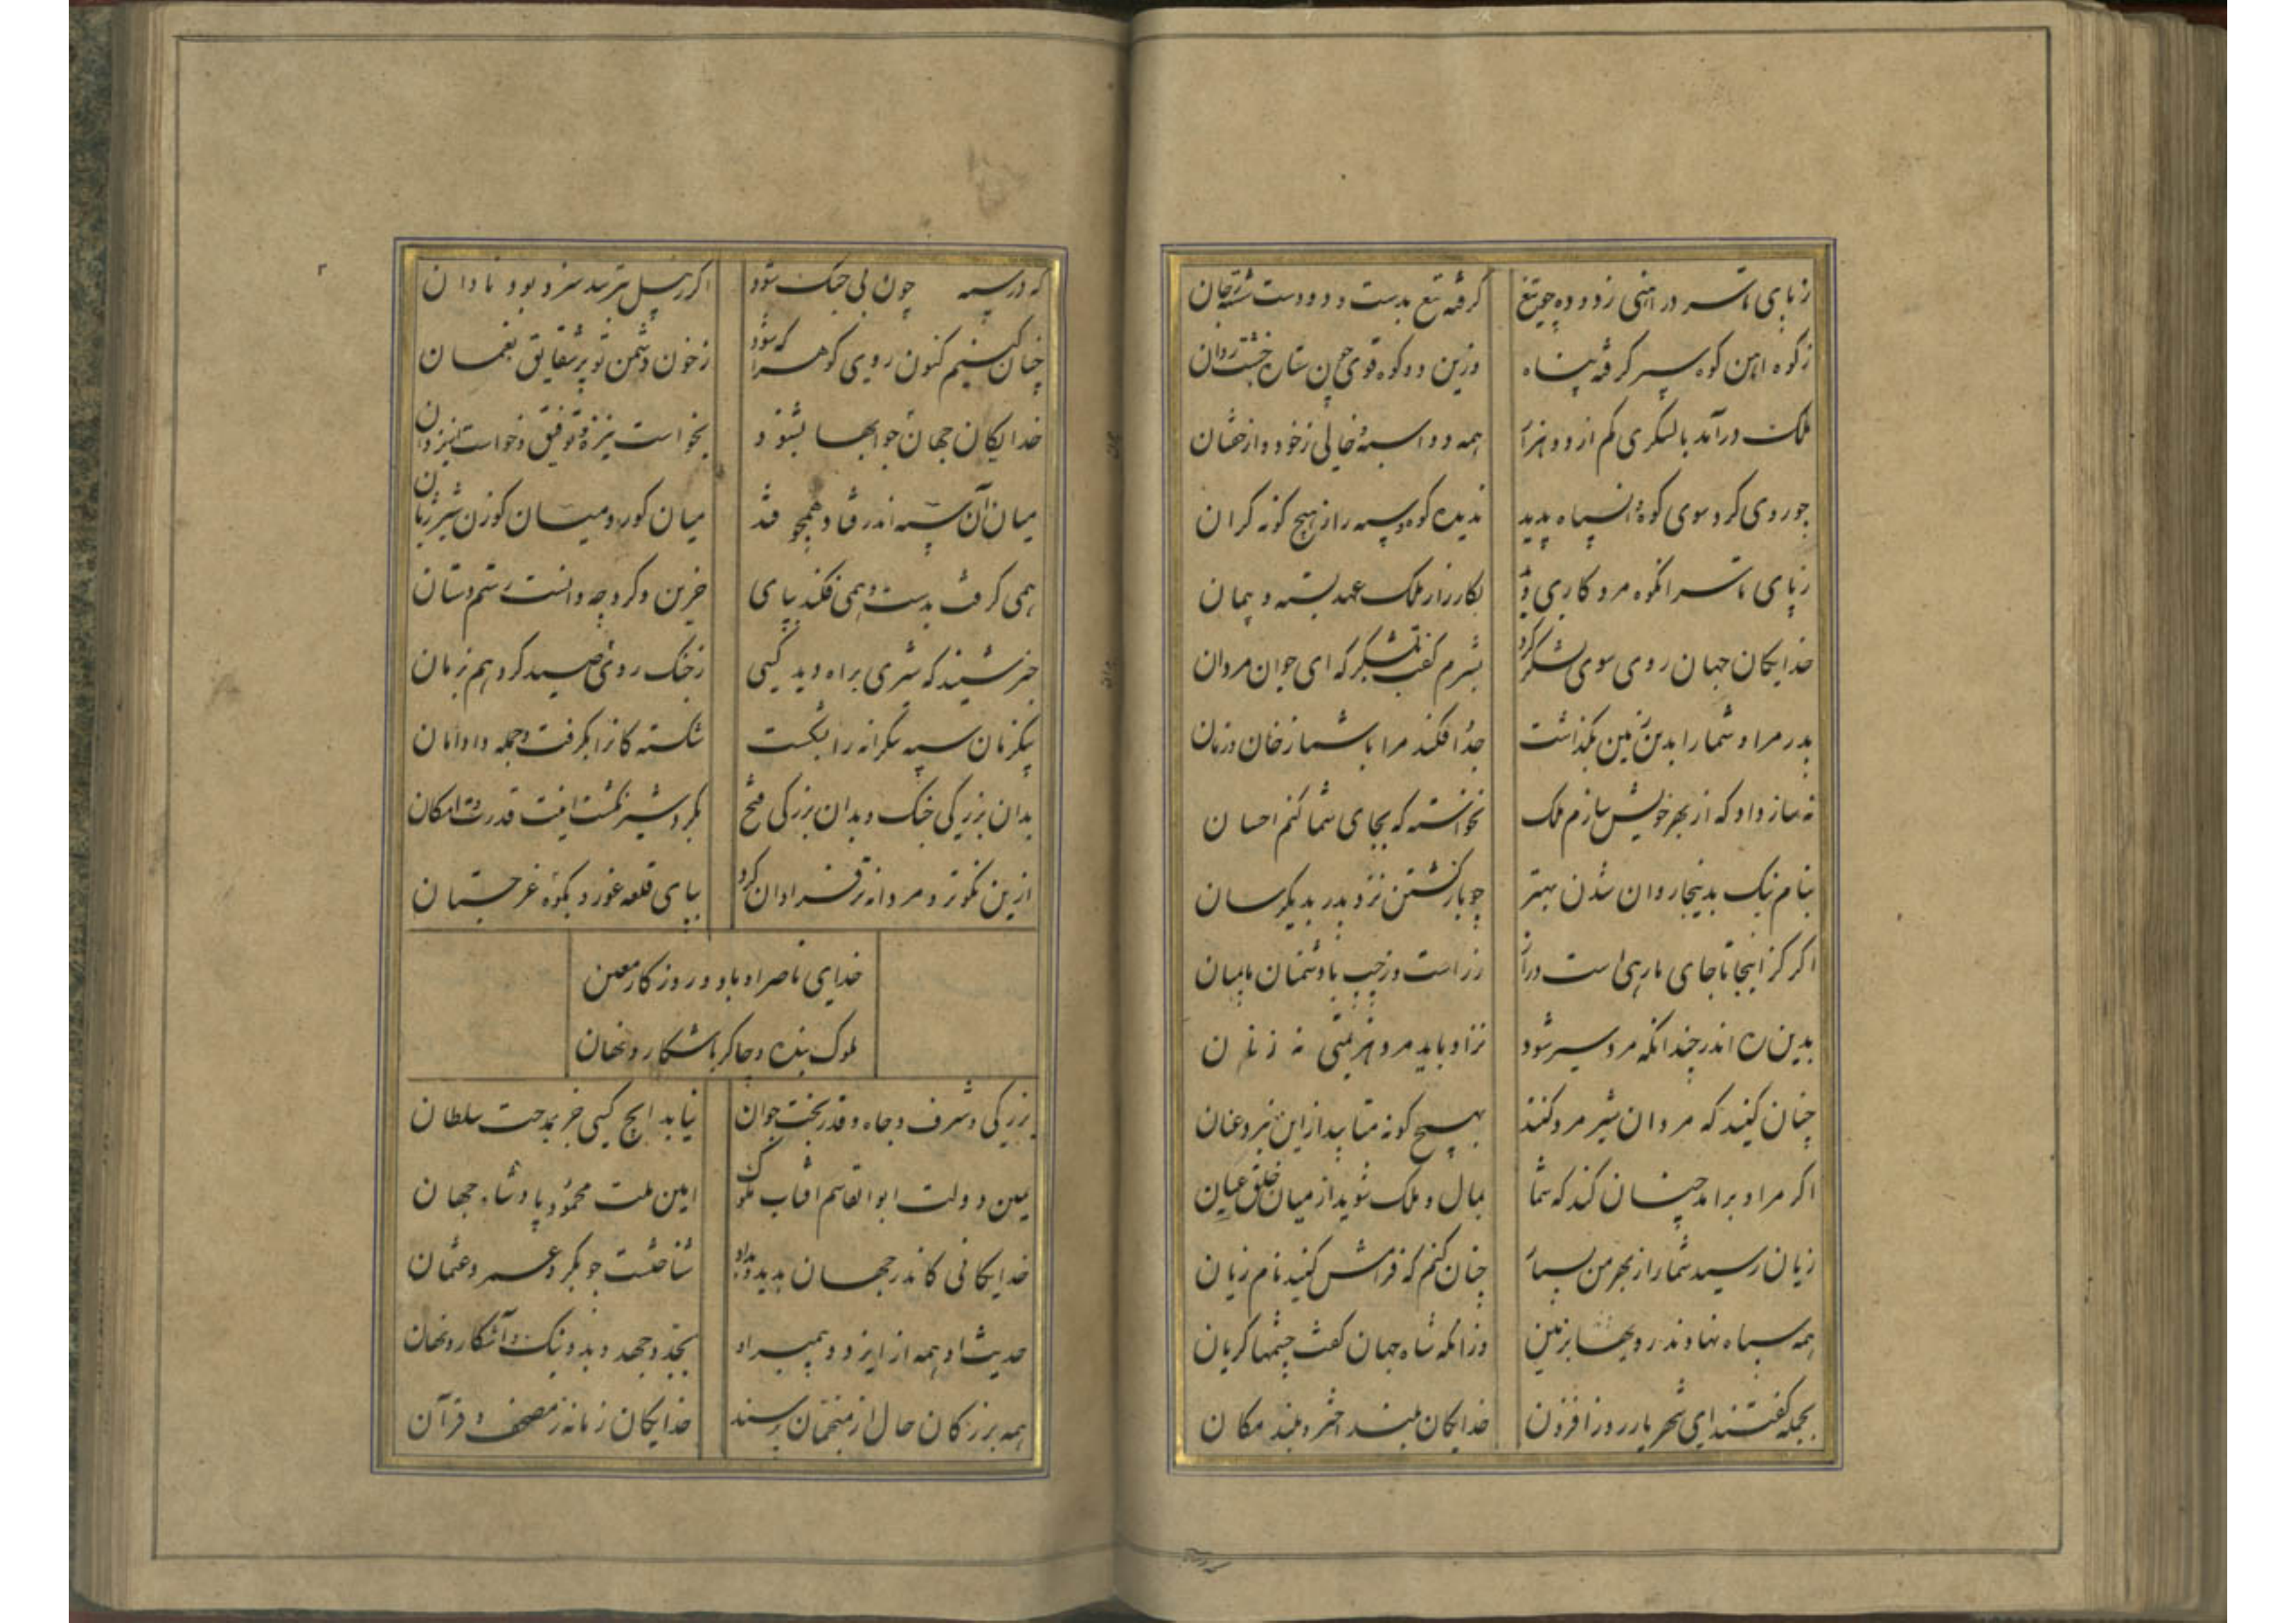 ز پای تا سر در آهنی زدوده چو تیغ گرفته تیغ بدست و دو دست شسته ز جان
ز کوه آهن کوه سپر گرفته پناه وزین دو کوه قوی چون ستاره خشت روان
ملک درآمد با لشکری کم از دو هزار همه دو اسبه و خالی ز خود و از خفتان
چو روی کرد سوی کوه و آن سپاه بدید ندیده کوه و سپه را ز هیچ گونه کران
ز پای تا سر انکوه مرد کاری بود بکارزار ملک عهد بسته و پیمان
خدایکان جهان روی سوی لشکر کرد بشرم گفت به لشکر که ای جوان مردان
پدر مرا و شما را بدین زمین بگذاشت جدا فکند مرا با شما ز خان و ز مان
نه ساز داد که از بهر خویش سازم ملک نخواسته که بجای شما کنم احسان
بنام نیک بدینجا روان شدن بهتر چو باز کشتن نزد پدر بدیگر سان
اگر گر اینجا تا جای ما رهی است دراز ز راست و ز چپ با دشمنان مامیان
بدین ره اندر چندانکه مرد سیر شود نزاد باید مرد هزیمتی نه ز نان
چنان کنید که مردان شیر مرد کنند بهیچ گونه متابید ازین نبرد عنان
اگر مراد برآمد چنان کند که شما بمال و ملک شوید از میان خلق عیان
زیان رسید شما را ز بهر من بسیار چنان کنم که فرامش کنید نام زیان
همه سپاه نهادند رویها بزمین وزانکه شاه جهان گفت چشمها گریان
بجمله گفتند ای شهریار روز افزون خدایکان بلند اختر و بلند مکان
که در سپه چون بی جنگ شود اگر ز پیل بترسد سزد بود نادان
چنان کنیم کنون روی کوه را که شود ز خون دشمن تو پر شقایق نعمان
خدایکان جهان جوابها بشنود بخواست نیزه و توفیق خواست از یزدان
میان آن سپه اندر فتاد همچو فتد میان گور و میان گوزن شیر ژیان
همی گرفت بدست و همی فکند بپای جز این نکرد چه دانست رستم دستان
خبر شنید که شیری براه دید کسی ز جنگ روی صید کرد هم زمان
بیک زمان سپه بیکرانه را بشکست شکسته گان را بگرفت و جمله داد امان
بدان بزرگی جنگ و بدان بزرگی فتح بگرد شیر نکشت یافت قدرت و امکان
از این نکوتر و مردانه تر فراوان کرد بپای قلعه غور و بکوه غرجستان
خدای ناصر او باد و روزگار معین
ملوک بنده و چاکر باشکار و نهان
بزرگی و شرف و جاه و قدر بخت جوان نیابد ایچ کسی جز بمدحت سلطان
یمین دولت ابوالقاسم آفتاب ملوک امین ملت محمود پادشاه جهان
خدایکانی کاندر جهان بدید و بداد شناختست چو بکر و عمر و عثمان
حدیث او همه از ایزد و پیمبر او بجد و جهد و بد و نیک و آشکار و نهان
همه بزرگان حال از منجمان پرسند خدایکان زمانه ز مصحف و قرآن